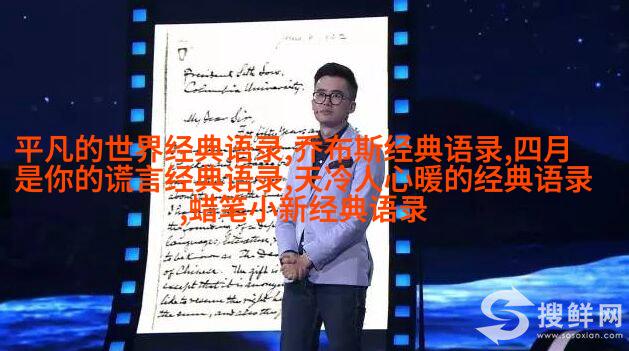 President Seth Low,
Columbia University.
My Dear Sir,
平凡的世界经典语录,乔布斯经典语录,四月
是你的谎言经典语录,天冷人心暖的经典语录
,蜡笔小新经典语录
the founding of a
Languages,
to be known as The
of Chinese. The gift is
except that it is
like to the right
the sum, and also
搜鲜网
www.sosoxian.com